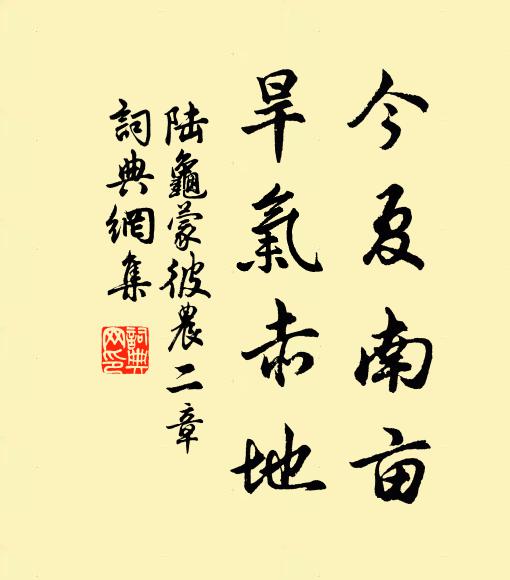 今夏南亩
旱氣赤地
陸龜蒙彼農二章
詞典網集
詞典網印